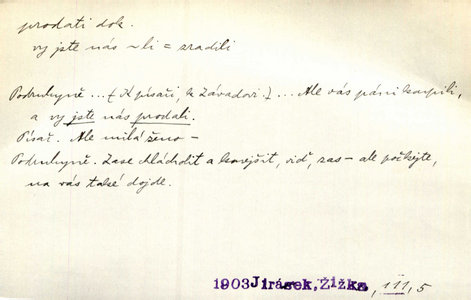 prodati dok.
vy jste nás ~li = zradili
Podruhyně ... {K písaři, k Závadovi.} ... Ale vás páni koupili,
a vy jste nás prodali.
Písař. Ale milá ženo –
Podruhyně. Zase chlácholit a konejšit, viď, zas – ale počkejte,
na vás také dojde.
1903 Jirásek, Žižka, III, 5